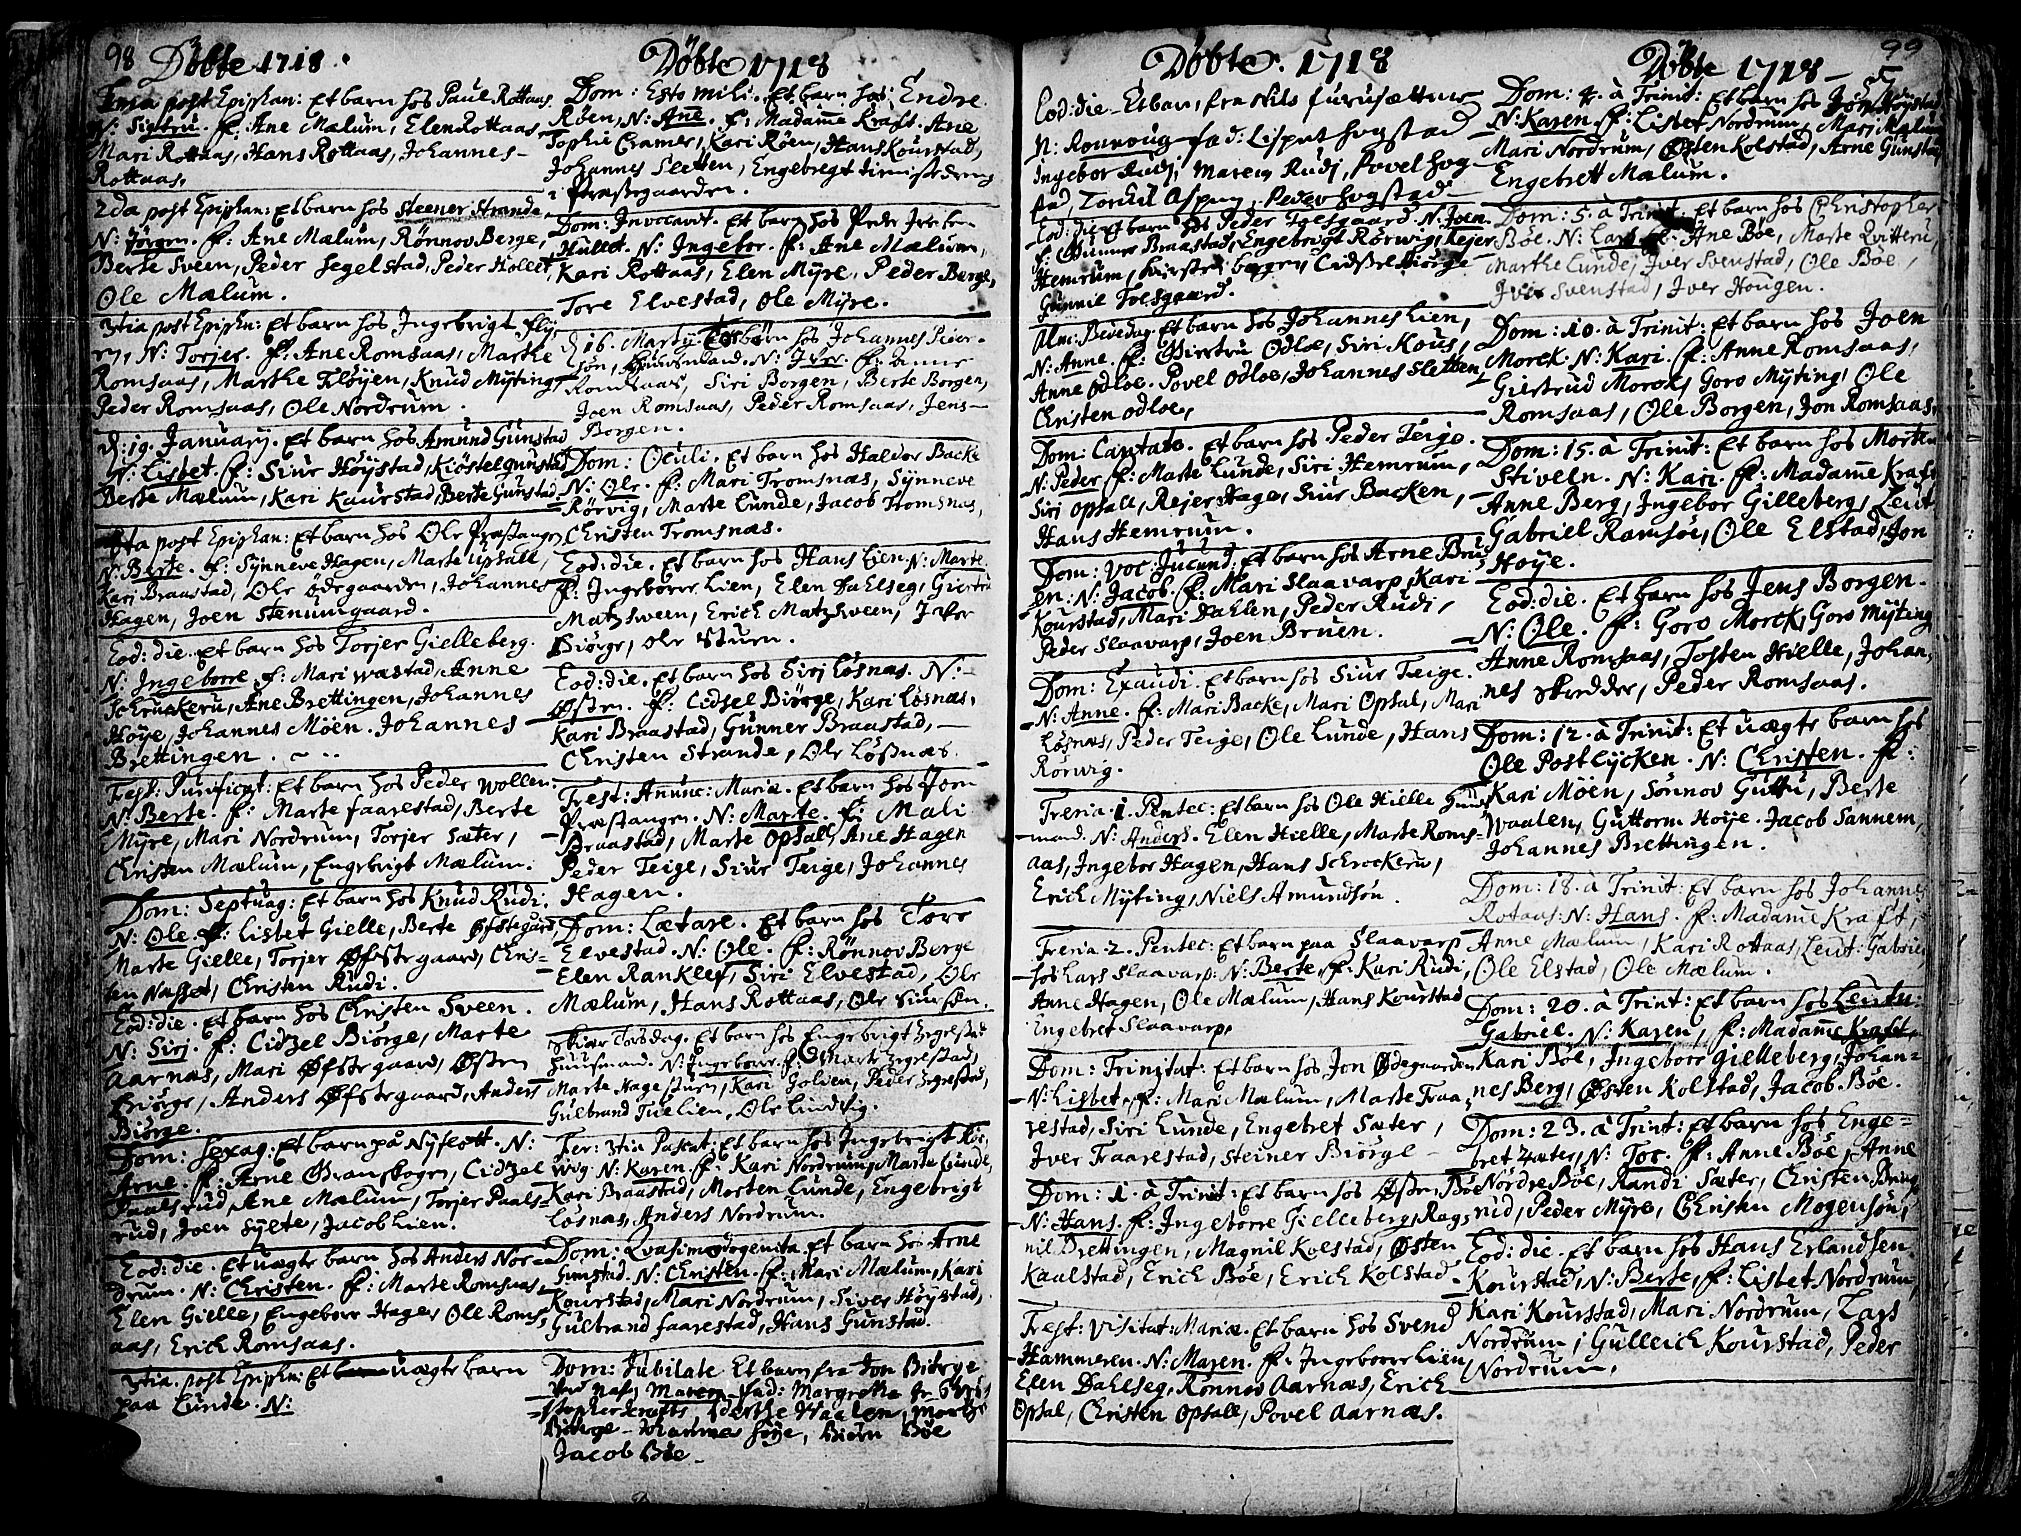 98 Döbte 1718.
1ma post Epiphan: Et barn hos Paul Rottaas
N: Sigtru. f: Ane Mælum, Elen Rottaas,
Mari Rottaas, Hans Rottaas, Johannes
Rottaas.
2da post Epiphan: et barn hos Steener Strande
N: Jörgen. f: Ane Mælum, Rönnov Berge,
Berte Sveen, Peder Segelstad, Peder Hollet,
Ole Mælum.
3tia post Epiphan: Et barn hos Ingebrigt
N: Torjer. f: Ane Romsaas, Marthe
Romsaas, Marthe Flöyen, Knud Myting,
Peder Romsaas, Ole Nordrum.
d: 19. January. Et barn hos Amund Gunstad
N: Lisbet. f: Siur Höystad, Kiöstel Gunstad
Berte Mælum, Kari Kaurstad, Berte Gunstad
4ta post Epiphan: Et barn hos Ole Præstangen
N: Berte. f: Synneve Hagen, Marte Upsall,
Kari Braastad, Ole Ödegaarden, Johannes
Hagen, Joen Stenumgaard.
Eod: die. et barn hos Torjer Gielleberg.
N: Ingeborre f: Mari Wastad, Anne
Schruckeru, Ane Brettingen, Johannes
Höye, Johannes Möen. Johannes
Brettingen.
Fest: Purificat: Et barn hos Peder Wollen.
N: Berte. f: Marte Faarestad, Berte
Myre, Mari Nordrum, Torjer Sæter,
Christen Mælum, Engebrigt Mælum.
Dom: Septuag: Et barn hos Knud Rudi.
N: Ole. f: Lisbet Gielle, Berte Øfstegard,
Marte Gielle, Torjer Øfstegaard, Chris=
ten Næsset, Christen Rudi.
Eod: die. et barn hos Christen Sveen.
N: Sirj. f: Cidzel Biörge, Marte
Aarnæs, Mari Øfstegaard, Østen
Biörge, Anders Øfstegaard, Anders
Biörge.
Dom: Sexag: Et barn på Nyseött. N:
Arne. f: Arne Gransbogen, Cidzel
Paalsrud, Ane Mælum, Torjer Paals=
rud, Joen Sylte, Jacob Lien.
Eod: die. Et uægte barn hos Anders Nor=
drum. N: Christen. f: Marte Romsaas,
Elen Gielle, Engeborr Hage, Ole Roms,
aas, Erich Romsaas.
3tia. post Epiphn: Et uægte barn
paa Lunde. N:
Döbte 1718
Dom: Esto mihi. Et barn hos Endre
Röen, N: Ane. f: Madame Kraft. Ane
Sophie Cramer, Kari Röen, Hans Kourstad,
Johannes Sletten, Engebregt
i Præstegaarden.
Dom: Invocavit. Et barn hos Peder
Hullet. N: Ingebor. f: Ane Mælum,
Kari Rottaas, Elen Myre, Peder Berge,
Tore Elvestad, Ole Myre.
d 16. Marty Et barn hos Johannes Peder=
sön, Huusmand. N: Iver. f: Anne
Romsaas, Siri Borgen, Berte Borgen,
Joen Romsaas, Peder Romsaas, Jens
Borgen.
Dom: Oculi. Et barn hos Haldor Backe
N: Ole. f: Mari Tromsnæs, Synneve
Rörvig, Marte Lunde, Jacob Tromsnæs,
Christen Tromsnæs.
Eod: die. Et barn hos Hans Lien. N: Marte.
f: Ingeborre Lien, Elen Dahlseg, Giertru
Matzsween, Erich Matzsween,
Biörge, Ole Sturn.
Eod: die. et barn hos Sirj Lösnæs. N:
Östen. f: Cidzel Biörge, Kari Lösnæs,
Kari Braastad, Gunner Braastad,
Christen Strande, Ole Lösnæs
Fest: Anunc: Mariæ. Et barn hos Joen
Præstangen. N: Marte. f: Mali
Braastad, Marte Opsall, Ane Hagen
Peder Teige, Siur Teige, Johannes
Hagen.
Dom: Lætare. Et barn hos Tore
Elvestad. N: Ole. f: Rönnov Berge
Elen Ranklef, Siri Elvestad, Ole
Mælum, Hans Rottaas, Ole Siursön.
Skiær Torsdag. Et barn hos Engebrigt Segelstad
Huusmand. N: Engeborre. f: Marte Segelstad,
Marte Hagesturn, Kari Golven, Peder Segelstad,
Gulbrand Tuelien, Ole Lindvig.
Fer: 3tia Pascat: Et barn hos Ingebrigt Rör,
wig N: Karen. f: Kari Nordrum, Marte Lunde,
Kari Braastad, Morten Lunde, Engebrigt
Lösnæs, Anders Nordrum.
Dom: Qvasimodogenita. Et barn hos Arne
Gunstad. N: Christen. f: Mari Mælum, Kari
Kourstad, Mari Nordrum, Siver Höystad,
Gulbrand Faarestad, Hans Gunstad.
Dom: Jubilate Et barn fra Jon Biörge
ved nafn Maren. fad: Margretha Hr Chris
stopher Krafts, Berthe Waalen, Marthe
Biörge - Johannes Höye, Biörn Böe
Jacob Böe
Döbte. 1718
Eod: die - Et barn fra Nils Furusætter
N: Ronnoug fad: Lispet Hogstad
Ingebor Rudj, Maren Rudj, Povel Hog
stad, Torchil Aspen, Peder Hogstad
Eod: die et barn hos Peder Toesgaard. N: Joen.
f: Gunner Braastad, Engebregt Rörwig, Rejer
Hemrum, Cidssel Biörge
Gunnil Toesgaard.
Alm: Bededag. Et barn hos Johannes Lien,
N: Anne. f: Giertru Odloe, Siri Kous,
Anne Odloe. Povel Odloe, Johannes Sletten,
Christen Odloe,
Dom: Cantate. Et barn hos Peder Teige.
N: Peder f: Marte Lunde, Siri Hemrum,
Siri Opsall, Rejer Hage, Siur Backen,
Hans Hemrum.
Dom: Voc: Jucund: Et barn hos Arne Bru
en: N: Jacob f: Mari Slaavarp, Kari
Kourstad, Mari Dahlen, Peder Rudi,
Peder Slaavarp, Joen Bruen.
Dom: Exaudi. Et barn hos Siur Teige.
N: Anne. f: Mari Backe, Mari Opsal, Mari
Lösnæs, Peder Teige, Ole Lunde, Hans
Rörwig.
Feria. 1. Pentec: Et barn hos Ole Hielle Huus
mand. N: Anders. Elen Hielle, Marte Roms=
aas, Ingebor Hagen, Hans Schrockeru,
Erich Myting, Niels Amundsön.
Feria. 2. Pentec: Et barn paa Slaavarp
hos Lars Slaavarp. N: Berte, f: Kari Rudi,
Anne Hagen, Ole Mælum, Hans Kourstad
Engebret Slaavarp.
Dom: Trinitat: Et barn hos Jon Ødegaarden
N: Lisbet. f: Mari Mælum, Marte Fraa
restad, Siri Lunde, Engebret Sæter,
Iver Fraarestad, Steiner Biörge
Dom: 1. à Trinit: Et barn hos Østen Böe
N: Hans. f: Ingeborre Gielleberg, Rag,
nil Brettingen, Magnil Kolstad, Østen
Kaalstad, Erich Böe, Erich Kolstad
Fest: Visitat: Mariæ. Et barn hos Svend
Hammeren. N: Maren. f: Ingeborre Lien,
Elen Dahlseg, Rönnov Aarnæs, Erich
Opsal, Christen Opsall, Povel Aarnæs.
Döbte 1718
99
Dom: 4. à Trinit: Et barn hos Jon Höystad
N: Karen. f: Lisbet Nordrum, Mari Mælum
Mari Nordrum, Østen Kolstad, Arne Gunstad
Engebrett Mælum.
Dom: 5. à Trinit. Et barn hos Christopher
Böe. N: Lars f: Ane Böe, Marte Qvitteru,
Marthe Lunde, Iver Svenstad, Ole Böe,
Iver Svenstad, Iver Hougen.
Dom: 10. à Trinit: Et barn hos Joen
Morck N: Kari. f: Anne Romsaas,
Giertrud Morck, Goro Myting, Ole
Romsaas, Ole Borgen, Jon Romsaas.
Dom: 15. à Trinit: Et barn hos Morten
Stiveln. N: Kari. f: Madame Kraft
Anne Berg, Ingebor Gilleberg, Leut
Gabriel Ramsöe, Ole Elstad, Jon
Höye.
Eod: die. Et barn hos Jens Borgen.
N: Ole. f: Goro Morck, Goro Myting
Anne Romsaas, Tosten Hielle, Johan,
nes Skredder, Peder Romsaas.
Dom: 12. à Trinit: Et uægte barn hos
Ole Postlycken. N: Christen. f:
Kari Möen, Sönnov Guttu, Berte
Waalen, Guttorm Höije. Jacob Sannem,
Johannes Brettingen.
Dom: 18. à Trinit: Et barn hos Johannes
Rotaas: N: Hans. f: Madame Kraft,
Anne Mælum, Kari Rottaas, Leut: Gabriel
Ole Elstad, Ole Mælum.
Dom: 20. à Trinit: Et barn hos Leutn:
Gabriel. N: Karen, f: Madame Kraft,
Kari Böe, Ingeborr Gielleberg, Johan=
nes Berg, Østen Kolstad, Jacob Böe.
Dom: 23. à Trinit: Et barn hos Enge=
bret Zæter, N: Tor. f: Anne Böe, Anne
Nordre Böe, Randi Sæter, Christen
rud, Peder Myre, Christen Mogensön,
Eod: die. Et barn hos Hans Erlandsen
Kourstad, N: Berte, f: Lisbet Nordrum,
Kari Kourstad, Mari Nordrum, Lars
Nordrum, Gulleich Kourstad, Peder
Nordrum,